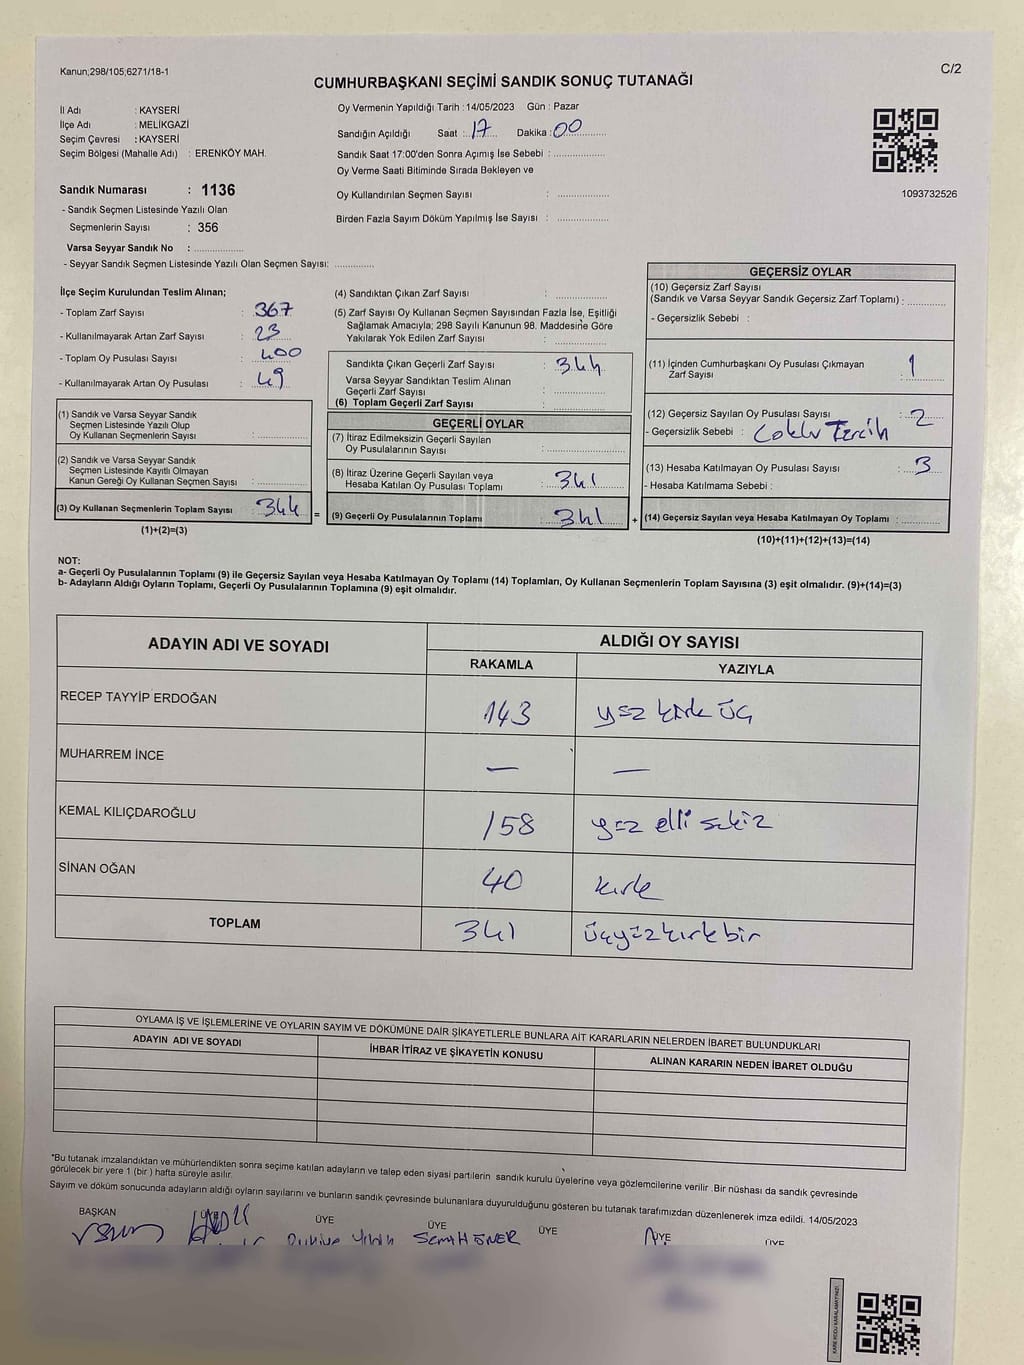 Kanun;298/105;6271/18-1
C/2
CUMHURBAŞKANI SEÇİMİ SANDIK SONUÇ TUTANAĞI
İl Adı : KAYSERİ
İlçe Adı : MELİKGAZİ
Seçim Çevresi : KAYSERİ
Seçim Bölgesi (Mahalle Adı) : ERENKÖY MAH.
Sandık Numarası : 1136
- Sandık Seçmen Listesinde Yazılı Olan
Seçmenlerin Sayısı : 356
Varsa Seyyar Sandık No : ..................
- Seyyar Sandık Seçmen Listesinde Yazılı Olan Seçmen Sayısı: ..............
Oy Vermenin Yapıldığı Tarih : 14/05/2023 Gün : Pazar
Sandığın Açıldığı Saat : 17 Dakika : 00
Sandık Saat 17:00'den Sonra Açımış İse Sebebi : ..................
Oy Verme Saati Bitiminde Sırada Bekleyen ve
Oy Kullandırılan Seçmen Sayısı : ..................
Birden Fazla Sayım Döküm Yapılmış İse Sayısı : ..................
1093732526
İlçe Seçim Kurulundan Teslim Alınan;
- Toplam Zarf Sayısı : 367
- Kullanılmayarak Artan Zarf Sayısı : 23
- Toplam Oy Pusulası Sayısı : 400
- Kullanılmayarak Artan Oy Pusulası : 49
(1) Sandık ve Varsa Seyyar Sandık
Seçmen Listesinde Yazılı Olup
Oy Kullanan Seçmenlerin Sayısı : ..................
(2) Sandık ve Varsa Seyyar Sandık
Seçmen Listesinde Kayıtlı Olmayan
Kanun Gereği Oy Kullanan Seçmen Sayısı : ..................
(3) Oy Kullanan Seçmenlerin Toplam Sayısı : 344 =
(1)+(2)=(3)
(4) Sandıktan Çıkan Zarf Sayısı : ..................
(5) Zarf Sayısı Oy Kullanan Seçmen Sayısından Fazla İse, Eşitliği
Sağlamak Amacıyla; 298 Sayılı Kanunun 98. Maddesine Göre
Yakılarak Yok Edilen Zarf Sayısı : ..................
Sandıkta Çıkan Geçerli Zarf Sayısı : 344
Varsa Seyyar Sandıktan Teslim Alınan
Geçerli Zarf Sayısı : ..................
(6) Toplam Geçerli Zarf Sayısı : ..................
GEÇERLİ OYLAR
(7) İtiraz Edilmeksizin Geçerli Sayılan
Oy Pusulalarının Sayısı : ..................
(8) İtiraz Üzerine Geçerli Sayılan veya
Hesaba Katılan Oy Pusulası Toplamı : 341
(9) Geçerli Oy Pusulalarının Toplamı : 341 +
GEÇERSİZ OYLAR
(10) Geçersiz Zarf Sayısı
(Sandık ve Varsa Seyyar Sandık Geçersiz Zarf Toplamı) : ............
- Geçersizlik Sebebi :
(11) İçinden Cumhurbaşkanı Oy Pusulası Çıkmayan
Zarf Sayısı : 1
(12) Geçersiz Sayılan Oy Pusulası Sayısı : 2
- Geçersizlik Sebebi : Çoklu Tercih
(13) Hesaba Katılmayan Oy Pusulası Sayısı : 3
- Hesaba Katılmama Sebebi :
(14) Geçersiz Sayılan veya Hesaba Katılmayan Oy Toplamı : ............
(10)+(11)+(12)+(13)=(14)
NOT:
a- Geçerli Oy Pusulalarının Toplamı (9) ile Geçersiz Sayılan veya Hesaba Katılmayan Oy Toplamı (14) Toplamları, Oy Kullanan Seçmenlerin Toplam Sayısına (3) eşit olmalıdır. (9)+(14)=(3)
b- Adayların Aldığı Oyların Toplamı, Geçerli Oy Pusulalarının Toplamına (9) eşit olmalıdır.
ADAYIN ADI VE SOYADI ALDIĞI OY SAYISI
RAKAMLA YAZIYLA
RECEP TAYYİP ERDOĞAN 143 yüz kırk üç
MUHARREM İNCE — —
KEMAL KILIÇDAROĞLU 158 yüz elli sekiz
SİNAN OĞAN 40 kırk
TOPLAM 341 üçyüzkırkbir
OYLAMA İŞ VE İŞLEMLERİNE VE OYLARIN SAYIM VE DÖKÜMÜNE DAİR ŞİKAYETLERLE BUNLARA AİT KARARLARIN NELERDEN İBARET BULUNDUKLARI
ADAYIN ADI VE SOYADI İHBAR İTİRAZ VE ŞİKAYETİN KONUSU ALINAN KARARIN NEDEN İBARET OLDUĞU
*Bu tutanak imzalandıktan ve mühürlendikten sonra seçime katılan adayların ve talep eden siyasi partilerin sandık kurulu üyelerine veya gözlemcilerine verilir .Bir nüshası da sandık çevresinde
görülecek bir yere 1 (bir ) hafta süreyle asılır.
Sayım ve döküm sonucunda adayların aldığı oyların sayılarını ve bunların sandık çevresinde bulunanlara duyurulduğunu gösteren bu tutanak tarafımızdan düzenlenerek imza edildi. 14/05/2023
BAŞKAN ÜYE ÜYE ÜYE ÜYE ÜYE ÜYE
SEMİH ÖNER